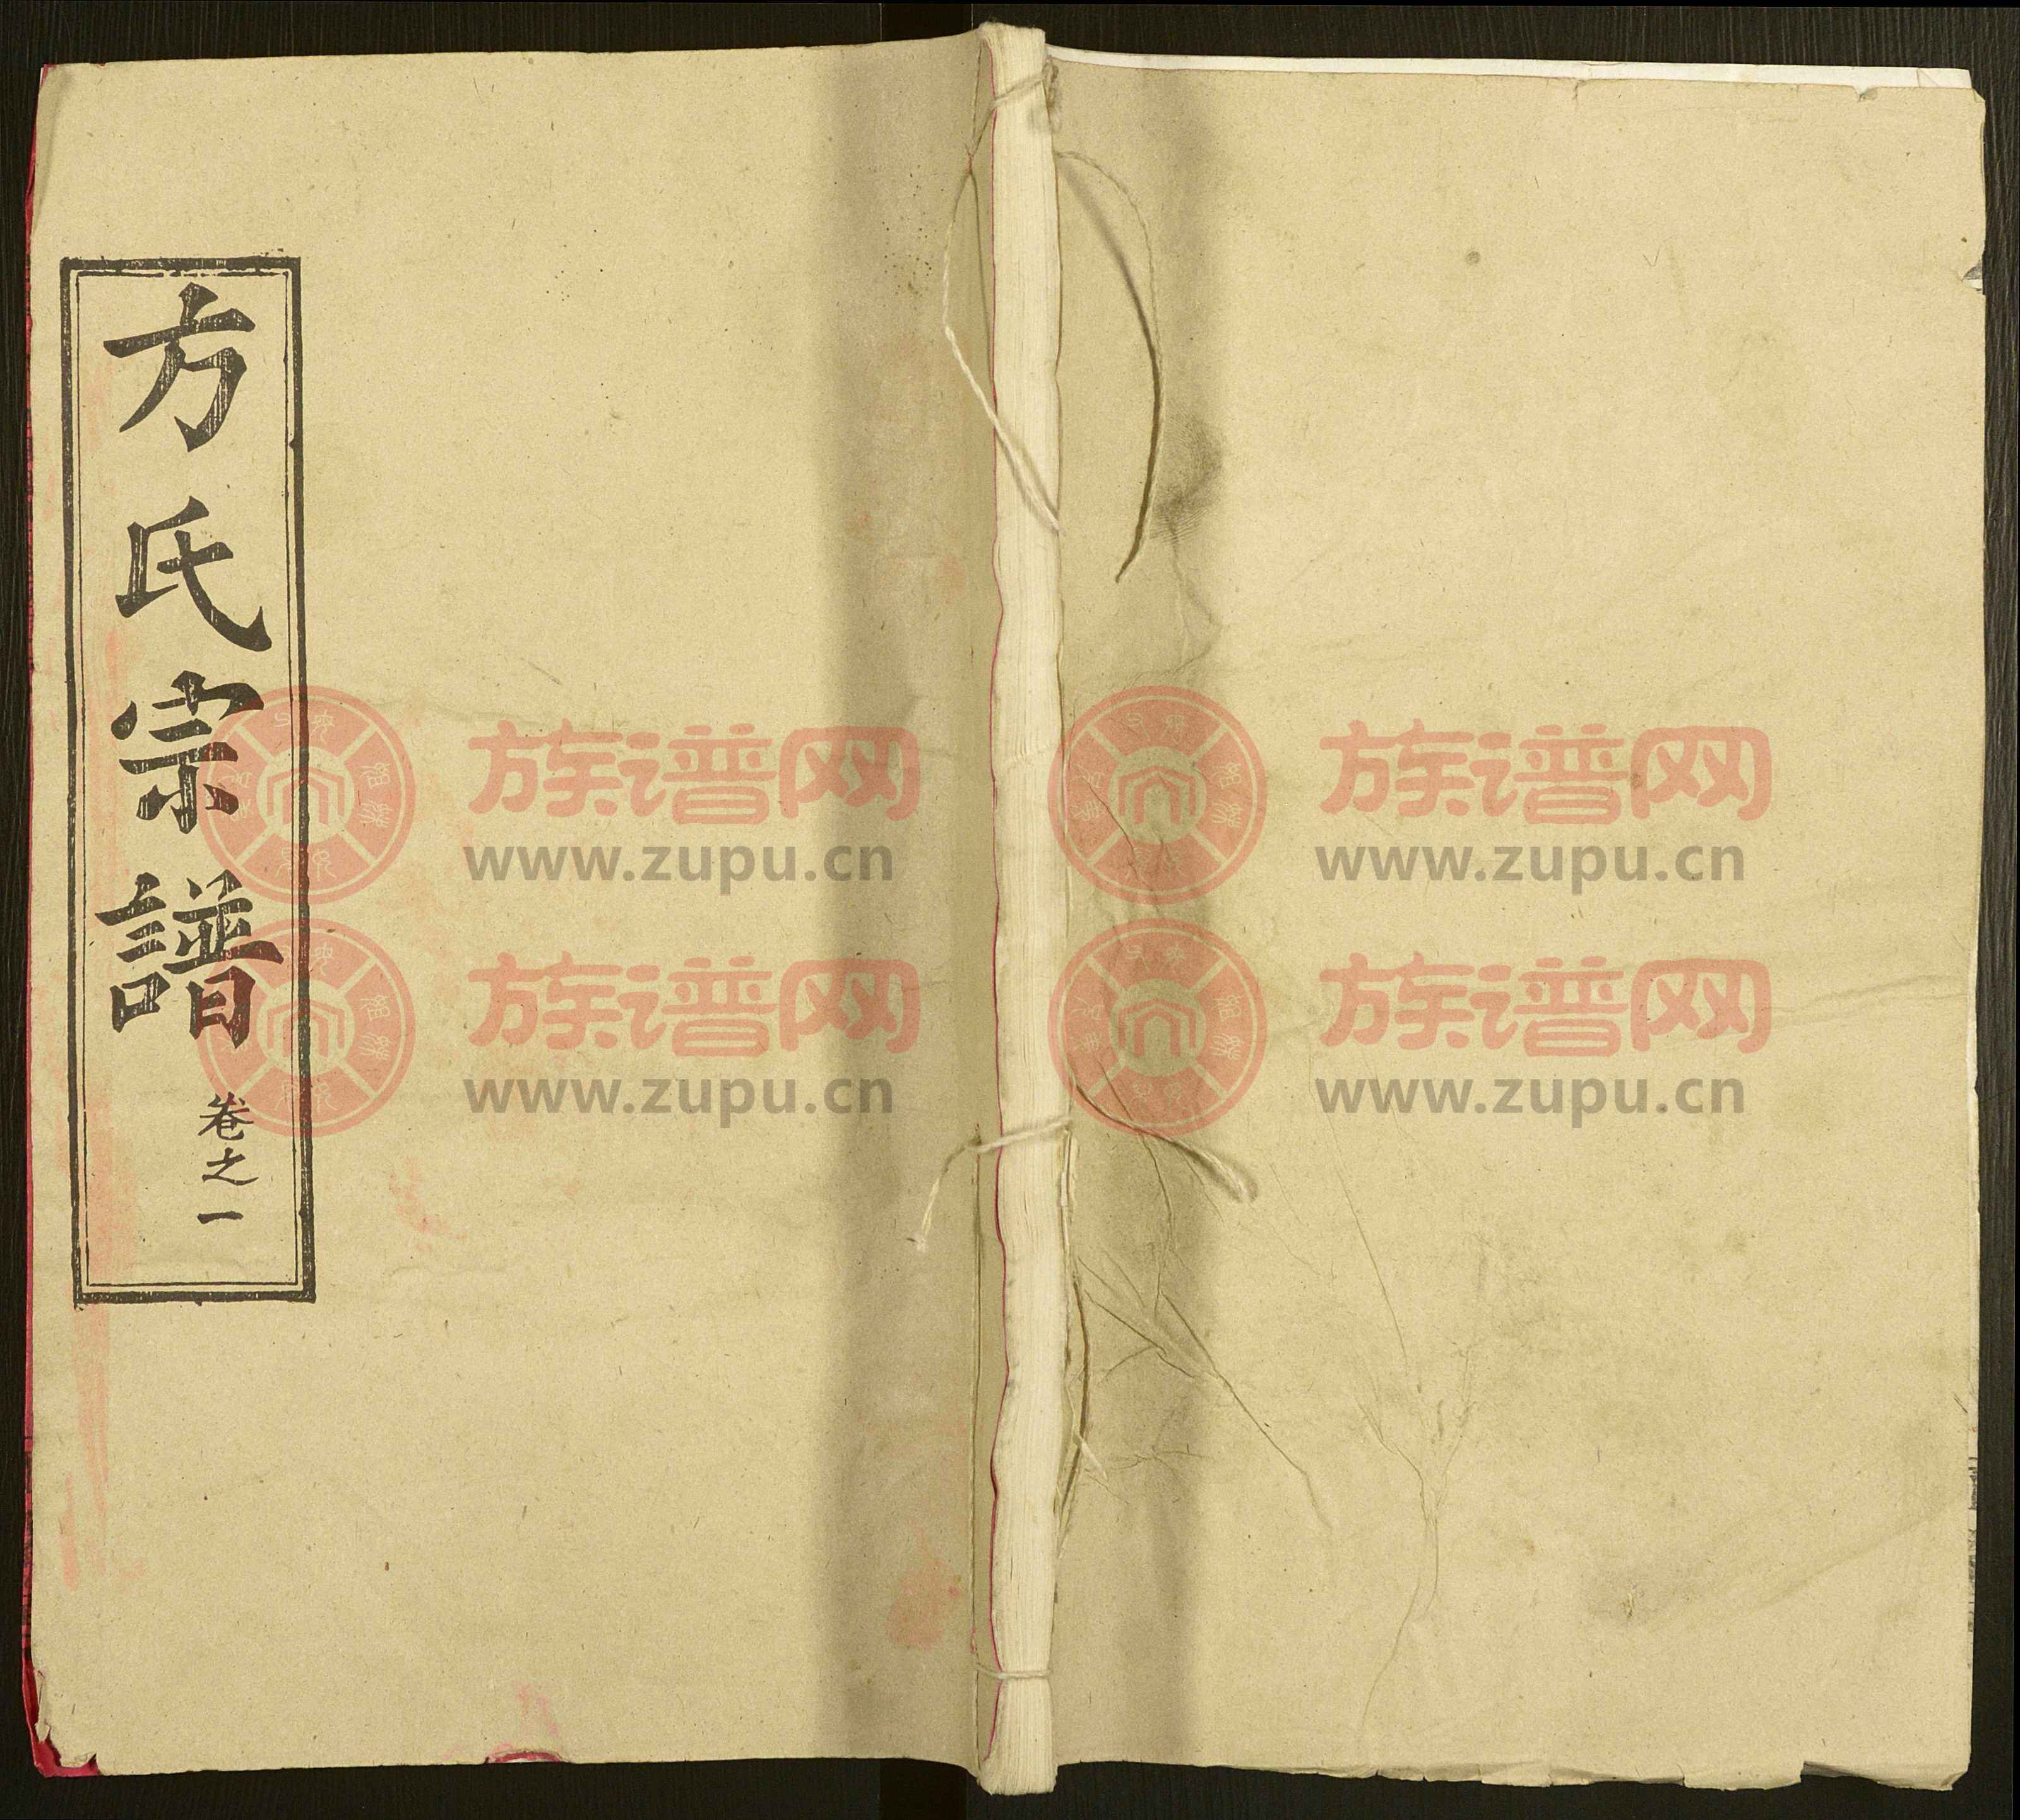 方氏宗譜
卷之一
族谱网 族谱网
www.zupu.cn www.zupu.cn
族谱网 族谱网
www.zupu.cn www.zupu.cn